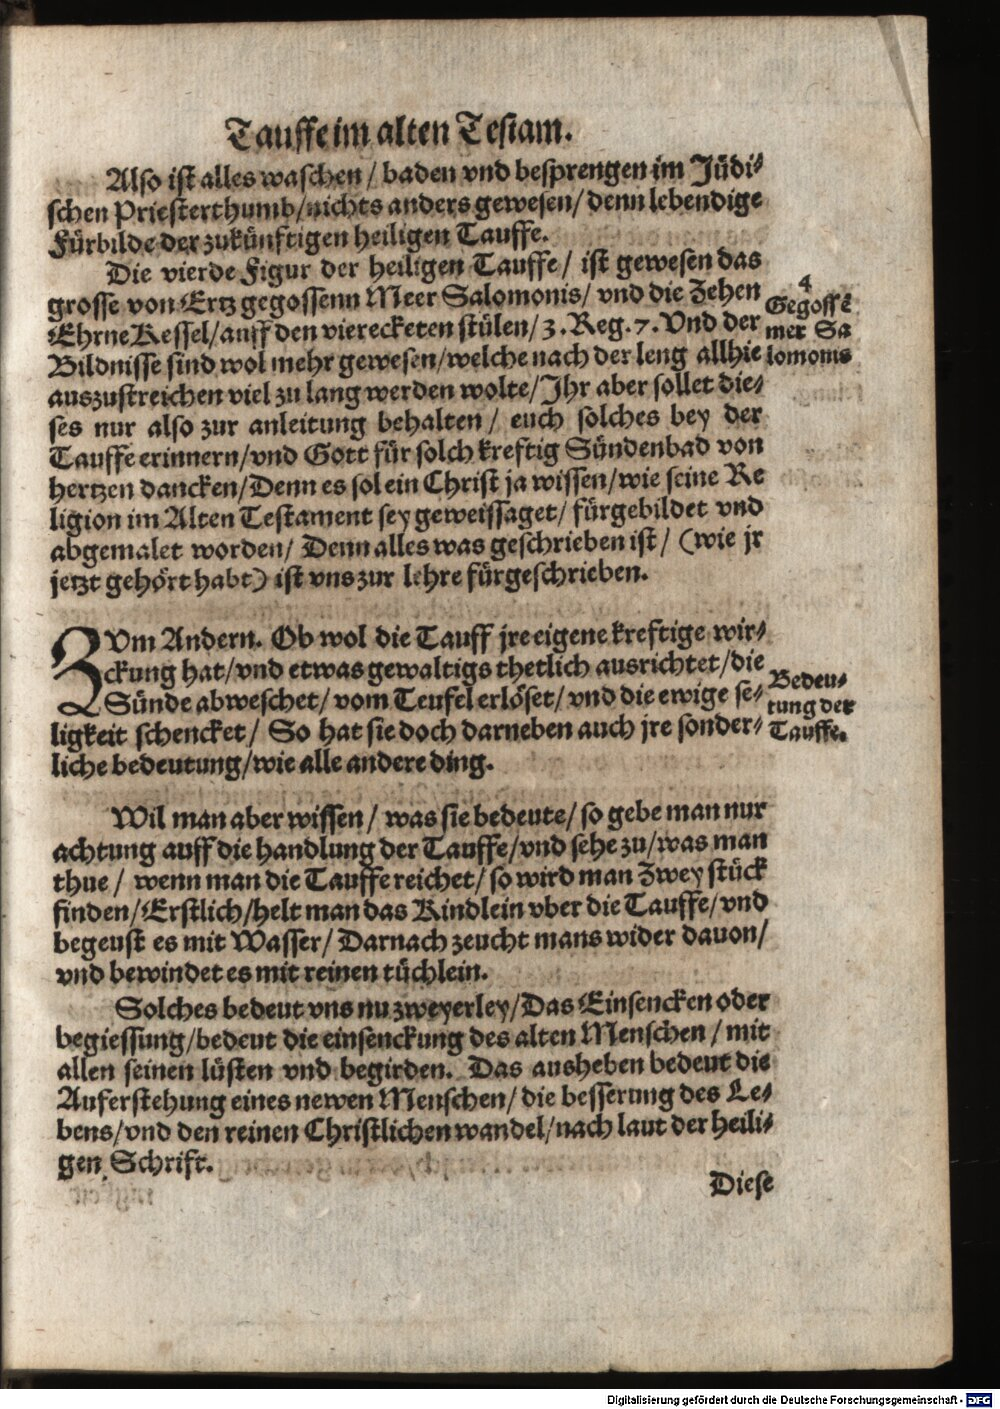 Tauffe im alten Testam.
Also ist alles waschen / baden vnd besprengen im Jüdi-
schen Priesterthumb/nichts anders gewesen/ denn lebendige
Fürbilde der zukünftigen heiligen Tauffe.
Die vierde Figur der heiligen Tauffe/ ist gewesen das
grosse von Ertz gegossenn Meer Salomonis/ vnd die Zehen
Ehrne Kessel/auff den vierecketen stülen/ 3. Reg. 7. Vnd der
Bildnisse sind wol mehr gewesen/welche nach der leng allhie
auszustreichen viel zu lang werden wolte/Jhr aber sollet die-
ses nur also zur anleitung behalten / euch solches bey der
Tauffe erinnern/vnd Gott für solch kreftig Sündenbad von
hertzen dancken/Denn es sol ein Christ ja wissen/wie seine Re
ligion im Alten Testament sey geweissaget/ fürgebildet vnd
abgemalet worden/ Denn alles was geschrieben ist/ (wie jr
jetzt gehört habt) ist vns zur lehre fürgeschrieben.
4
Gegossẽ
mer Sa
lomonis
ZVm Andern. Ob wol die Tauff jre eigene kreftige wir-
ckung hat/vnd etwas gewaltigs thetlich ausrichtet/die
Sünde abweschet/ vom Teufel erlöset/ vnd die ewige se-
ligkeit schencket/ So hat sie doch darneben auch jre sonder-
liche bedeutung/wie alle andere ding.
Bedeu-
tung der
Tauffe.
Wil man aber wissen/ was sie bedeute/ so gebe man nur
achtung auff die handlung der Tauffe/vnd sehe zu/was man
thue / wenn man die Tauffe reichet/ so wird man Zwey stück
finden/Erstlich/helt man das Kindlein vber die Tauffe/vnd
begeust es mit Wasser/ Darnach zeucht mans wider dauon/
vnd bewindet es mit reinen tüchlein.
Solches bedeut vns nu zweyerley/Das Einsencken oder
begiessung/bedeut die einsenckung des alten Menschen / mit
allen seinen lüsten vnd begirden. Das ausheben bedeut die
Auferstehung eines newen Menschen/ die besserung des Le-
bens/vnd den reinen Christlichen wandel/nach laut der heili-
gen Schrift.
Diese
Digitalisierung gefördert durch die Deutsche Forschungsgemeinschaft - DFG